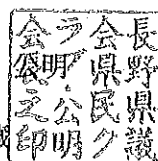 長野県議
会県民ク
ラブ・公明
会之印